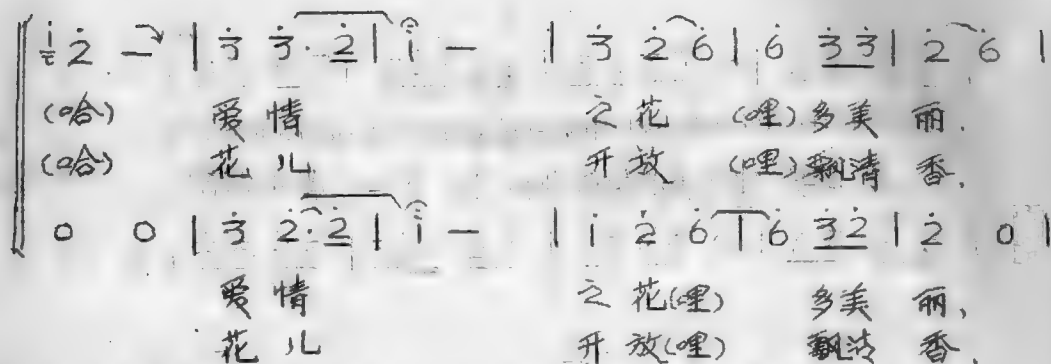 i 2̇ — | 3̇ 3̇. 2̇ | i — | 3̇ 2̇ 6̇ | 6̇ 3̇3̇ | 2̇ 6̇ |
(哈) 爱 情 之 花 (哩) 多美 丽,
(哈) 花 儿 开 放 (哩) 飘清 香,
0 0 | 3̇ 2̇. 2̇ | i — | i 2̇ 6̇ | 6̇ 3̇2̇ | 2̇ 0 |
爱 情 之 花(哩) 多美 丽,
花 儿 开 放(哩) 飘清 香,